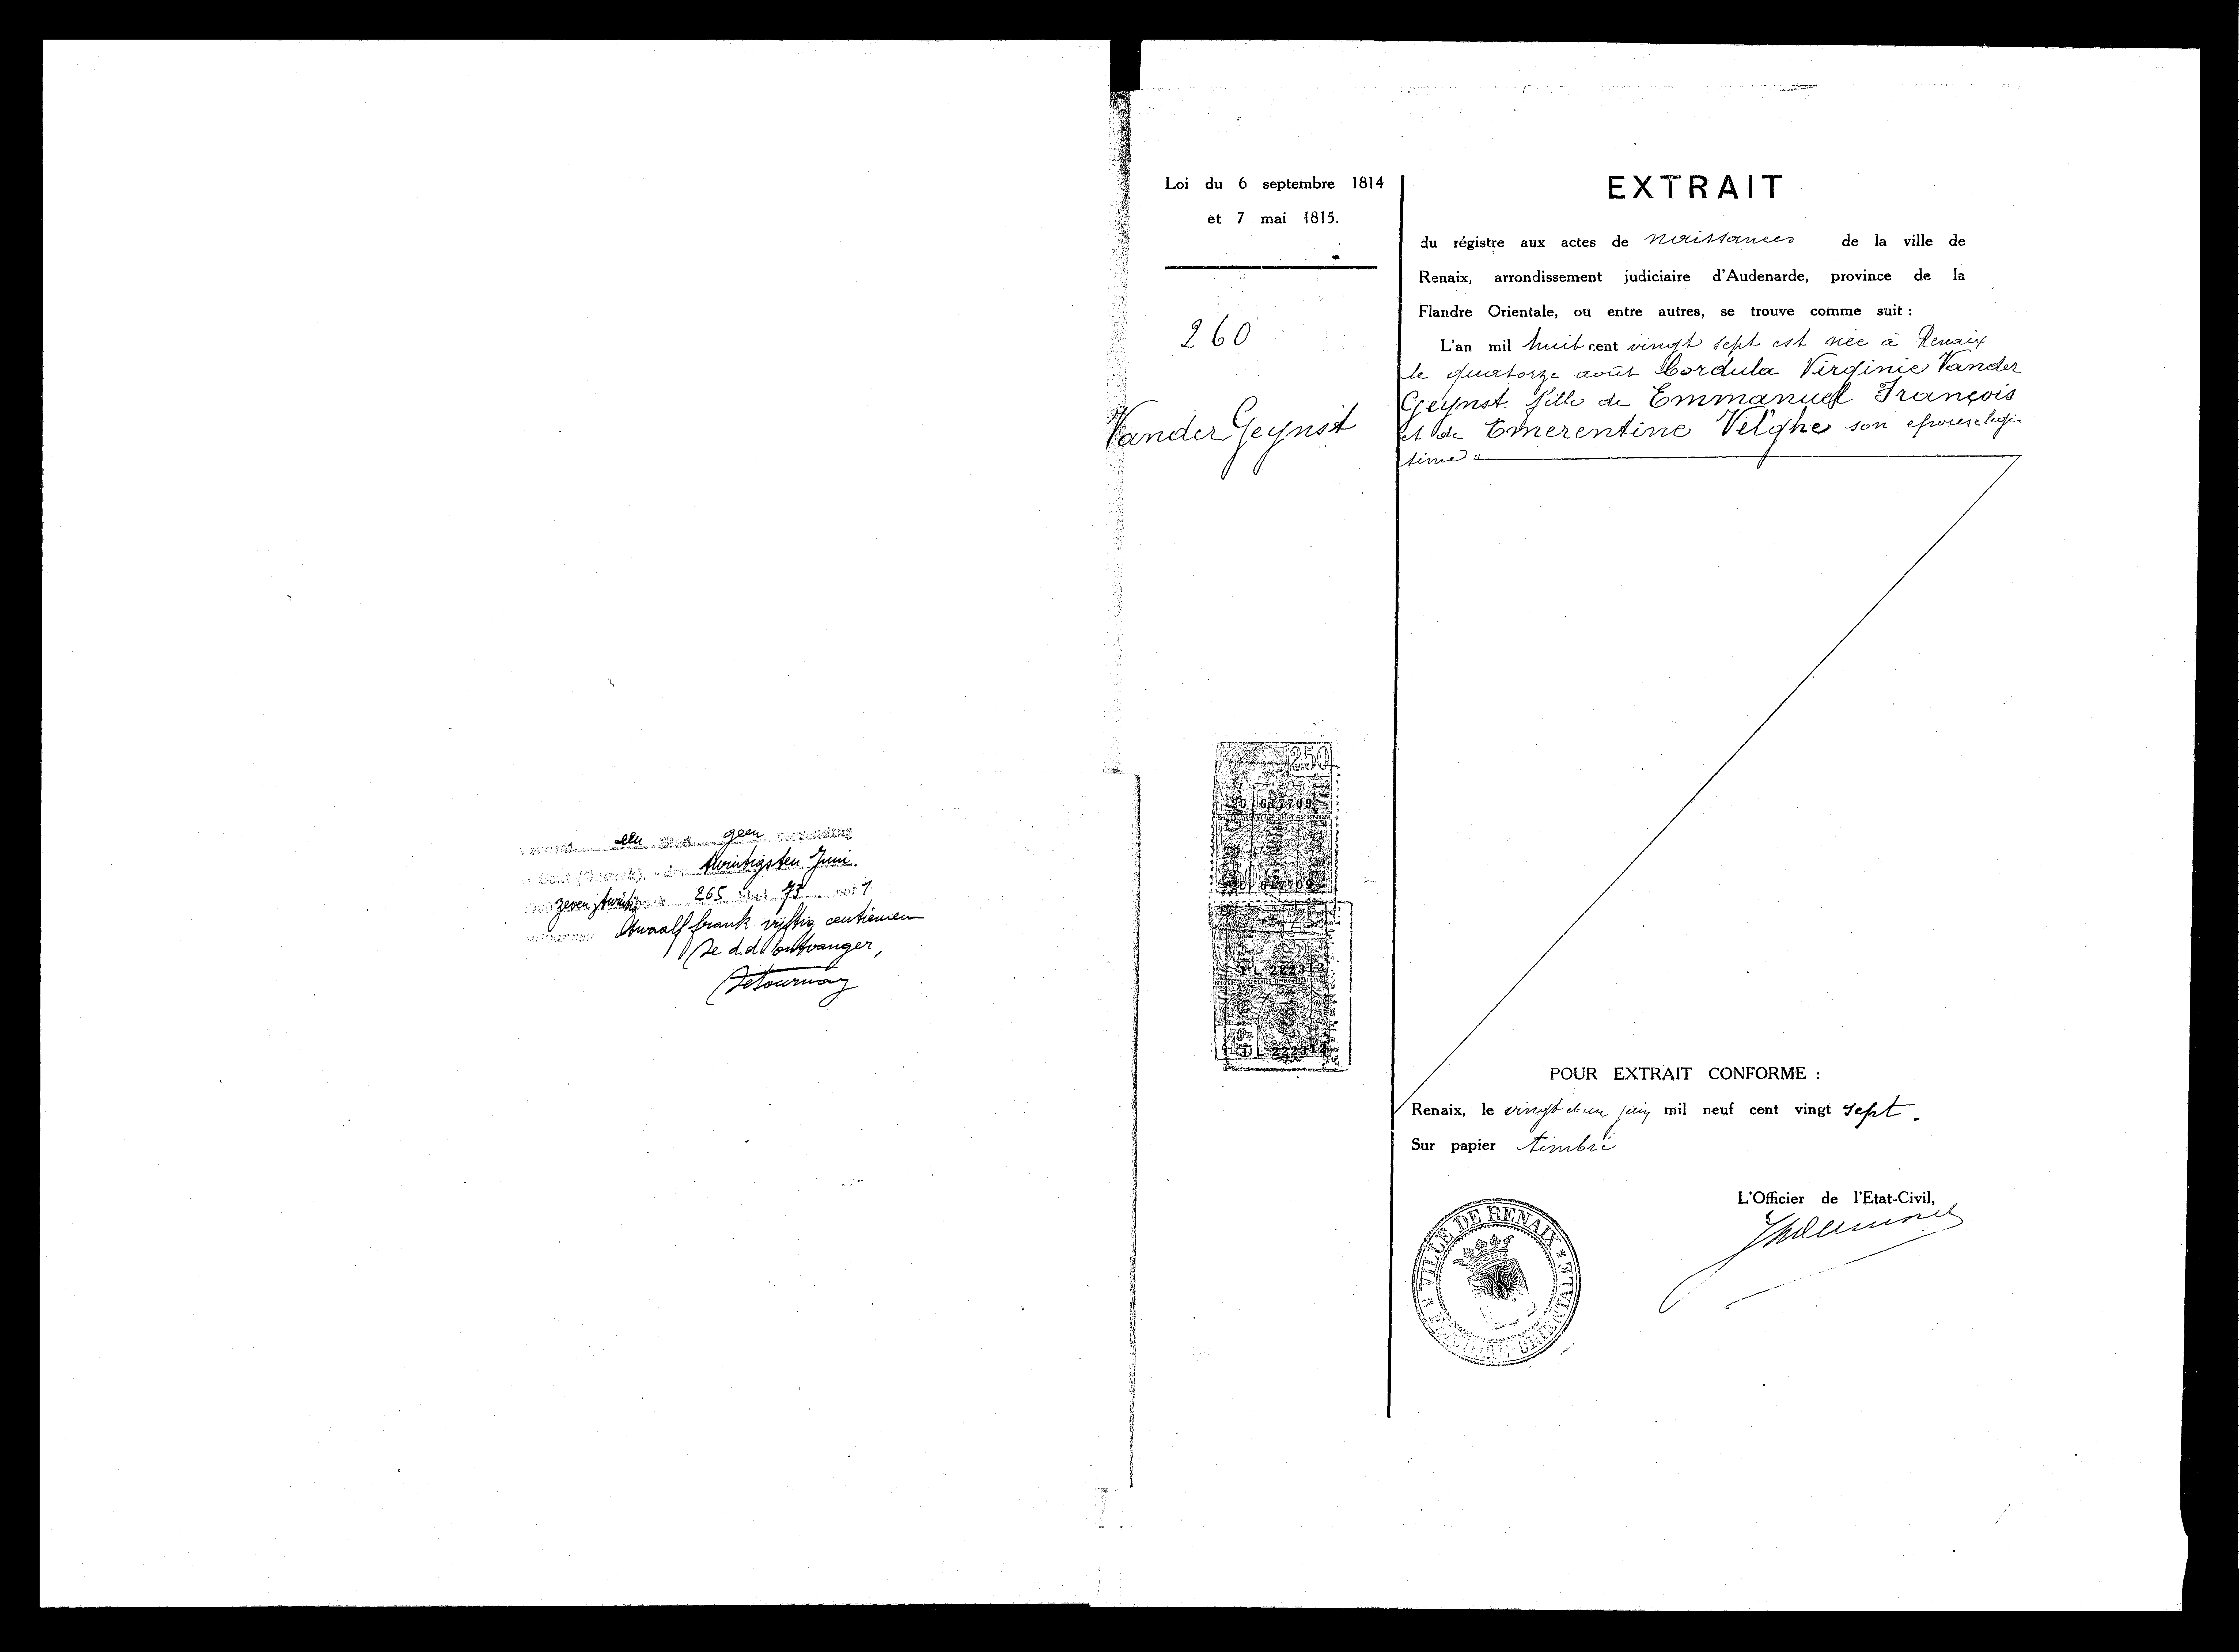 een geen verzending
Gent ( ), den twintigsten Juni
zeven twintig 265 blad 73 vak 1
twaalf frank vijftig centiemen
De d.d. ontvanger,
Detournay
Loi du 6 septembre 1814
et 7 mai 1815.
260
Vander Geynst
250
2D 617709
2D 617709
1L 222312
1L 222312
EXTRAIT
du régistre aux actes de naissances de la ville de
Renaix, arrondissement judiciaire d'Audenarde, province de la
Flandre Orientale, ou entre autres, se trouve comme suit :
L'an mil huit cent vingt sept est née à Renaix
le quatorze août Cordula Virginie Vander
Geynst fille de Emmanuel François
et de Emerentine Velghe son epouse legi-
time
POUR EXTRAIT CONFORME :
Renaix, le vingt et un juin mil neuf cent vingt sept.
Sur papier timbré
L'Officier de l'Etat-Civil,
VILLE DE RENAIX * FLANDRE-ORIENTALE *